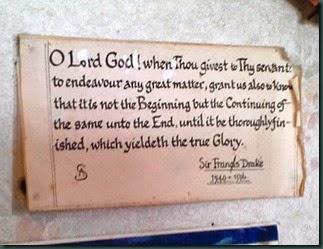 O Lord God! when Thou givest to Thy servants
to endeavour any great matter, grant us also to know
that it is not the Beginning but the Continuing of
the same unto the End, until it be thoroughly fin-
ished, which yieldeth the true Glory.
Sir Francis Drake